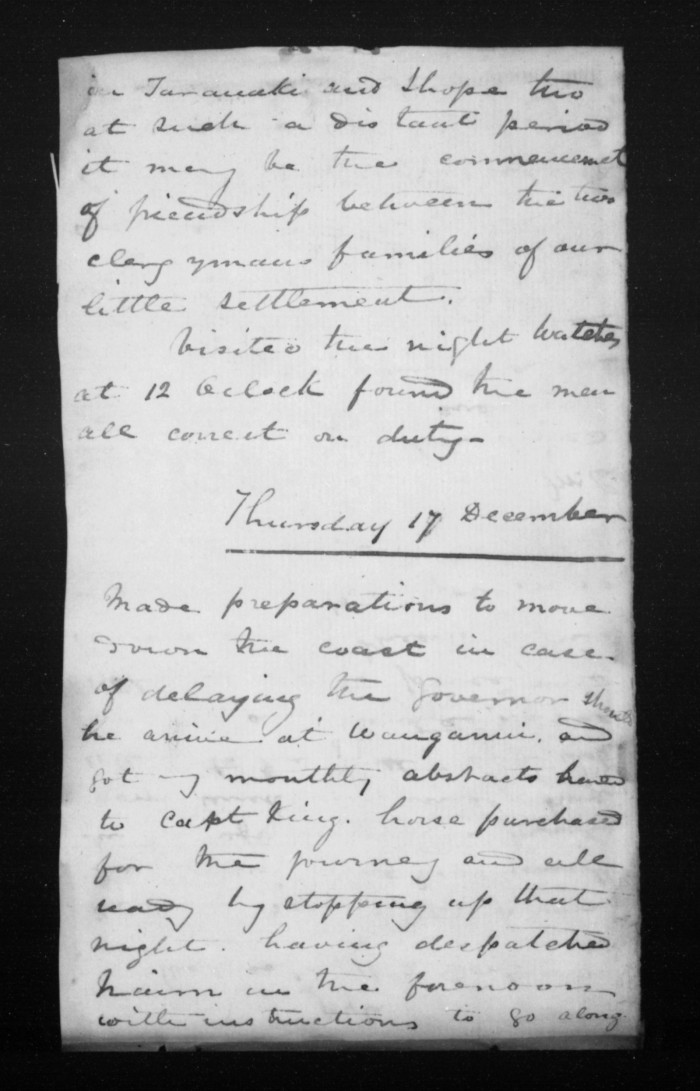 in Taranaki and I hope tho
at such a distant period
it may be the commencemet
of friendship between the two
clergymans families of our
little settlement.
Visited the night Watches
at 12 OClock found the men
all correct on duty-
Thursday 17 December
Made preparations to move
down the coast in case
of delaying the Governor should
he arrive at Wanganui. and
got my monthly abstracts
to Capt King. horse purchased
for the journey and all
ready by stopping up that
night. having despatched
in the forenoon
with instructions to go along